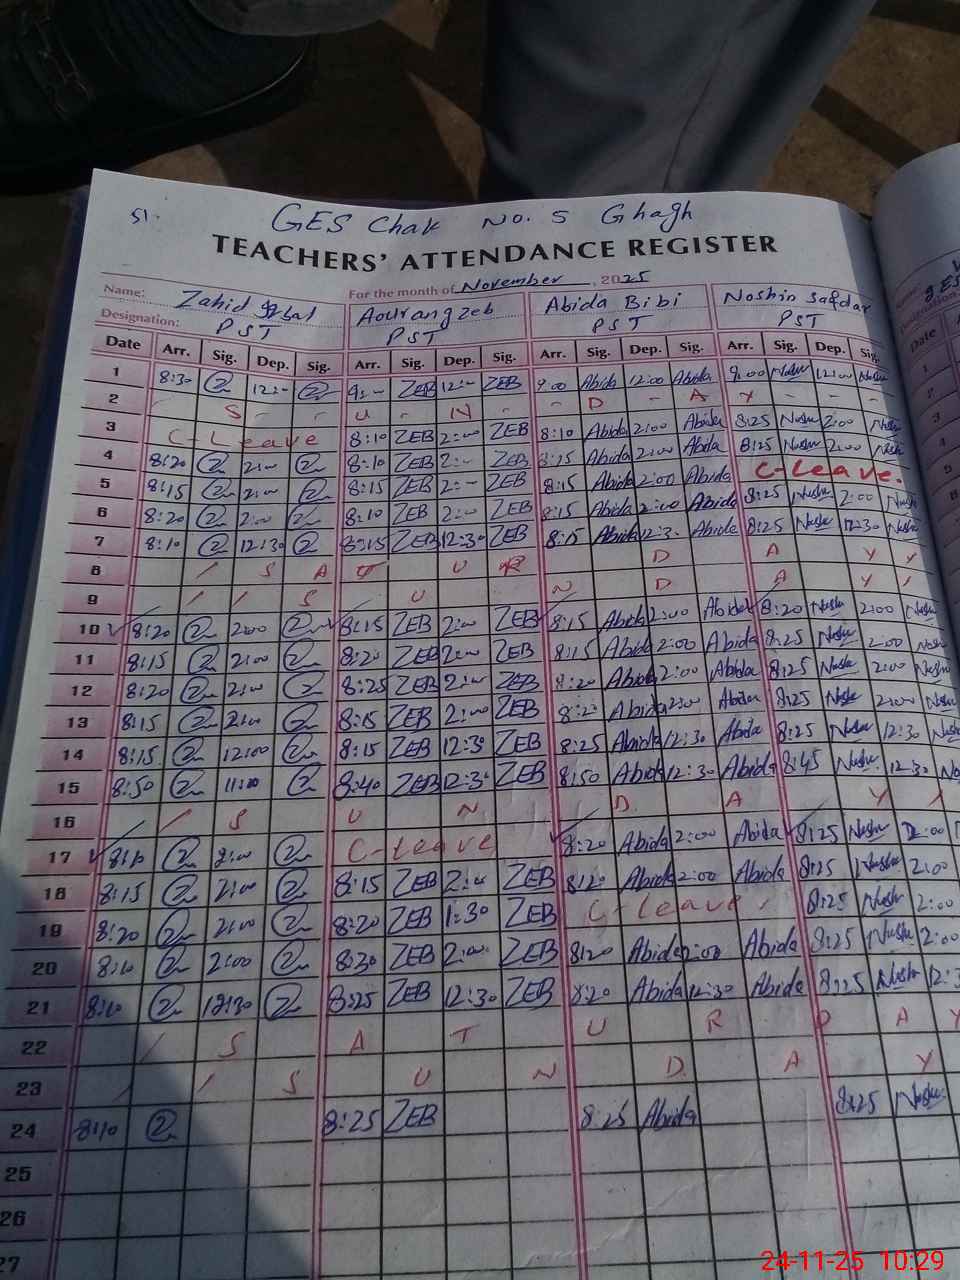 51.
GES Chak No. 5 Ghagh
TEACHERS' ATTENDANCE REGISTER
For the month of November, 2025
Name: Zahid Iqbal Aourangzeb Abida Bibi Noshin Safdar
Designation: PST PST PST PST
Date Arr. Sig. Dep. Sig. Arr. Sig. Dep. Sig. Arr. Sig. Dep. Sig. Arr. Sig. Dep. Sig.
1 8:30 12:00 9:00 ZEB 12:00 ZEB 9:00 Abida 12:00 Abida 9:00 Noshi 12:00 Noshi
2 S - - U - N - - D - A Y - - -
3 C-Leave 8:10 ZEB 2:00 ZEB 8:10 Abida 2:00 Abida 8:25 Noshi 2:00 Noshi
4 8:20 2:00 8:10 ZEB 2:00 ZEB 8:15 Abida 2:00 Abida 8:25 Noshi 2:00 Noshi
5 8:15 2:00 8:15 ZEB 2:00 ZEB 8:15 Abida 2:00 Abida C-Leave.
6 8:20 2:00 8:10 ZEB 2:00 ZEB 8:15 Abida 2:00 Abida 8:25 Noshi 2:00 Noshi
7 8:10 12:30 8:15 ZEB 12:30 ZEB 8:15 Abida 12:30 Abida 8:25 Noshi 12:30 Noshi
8 / S A T U R D A Y /
9 / / S U N D A Y /
10 8:20 2:00 8:15 ZEB 2:00 ZEB 8:15 Abida 2:00 Abida 8:20 Noshi 2:00 Noshi
11 8:15 2:00 8:20 ZEB 2:00 ZEB 8:15 Abida 2:00 Abida 8:25 Noshi 2:00 Noshi
12 8:20 2:00 8:25 ZEB 2:00 ZEB 8:20 Abida 2:00 Abida 8:25 Noshi 2:00 Noshi
13 8:15 2:00 8:15 ZEB 2:00 ZEB 8:20 Abida 2:00 Abida 8:25 Noshi 2:00 Noshi
14 8:15 12:00 8:15 ZEB 12:30 ZEB 8:25 Abida 12:30 Abida 8:25 Noshi 12:30
15 8:50 11:00 8:40 ZEB 12:30 ZEB 8:50 Abida 12:30 Abida 8:45 Noshi 12:30
16 / / S U N D A Y /
17 8:10 2:00 C-Leave 8:20 Abida 2:00 Abida 8:25 Noshi 2:00
18 8:15 2:00 8:15 ZEB 2:00 ZEB 8:20 Abida 2:00 Abida 8:25 Noshi 2:00
19 8:20 2:00 8:20 ZEB 1:30 ZEB C-Leave. 8:25 Noshi 2:00
20 8:10 2:00 8:30 ZEB 2:00 ZEB 8:20 Abida 2:00 Abida 8:25 Noshi 2:00
21 8:10 12:30 8:25 ZEB 12:30 ZEB 8:20 Abida 12:30 Abida 8:25 Noshi
22 / S A T U R D A Y
23 / / S U N D A Y
24 8:10 8:25 ZEB 8:25 Abida 8:25 Noshi
25
26
27
24-11-25 10:29